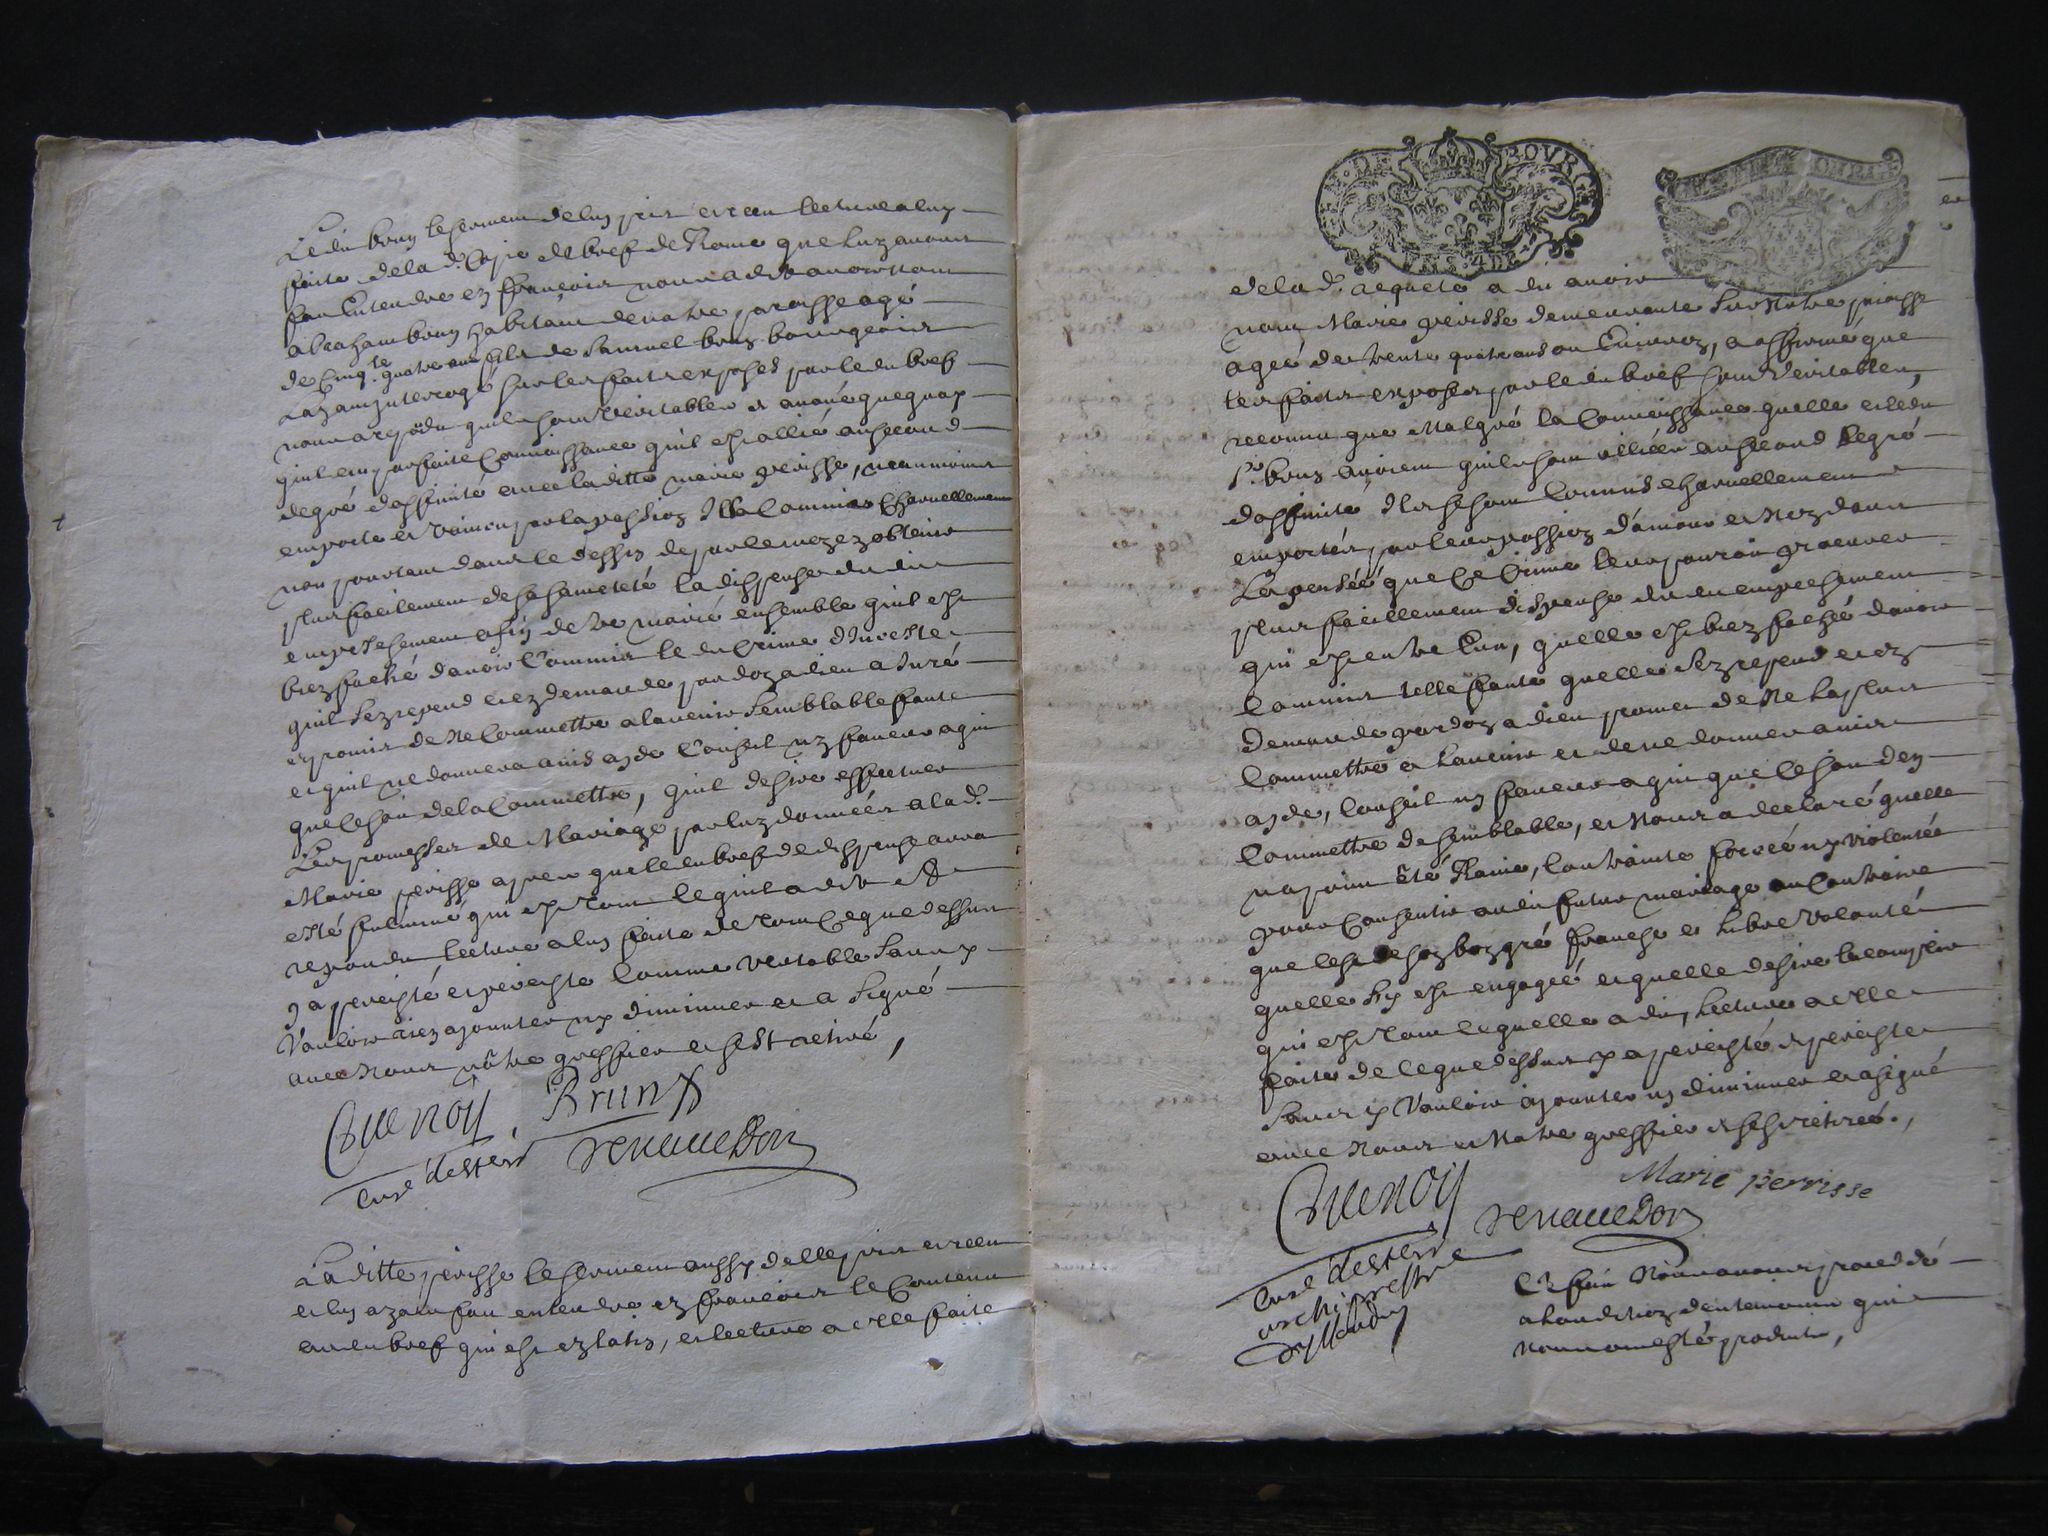 Le dit brun le serment de luy pris et receu lecture a luy
faite de la d.e Copie de bref de Rome que luy avons
fait Entendre en françois nous a dit avoir nom
abraham brun habitant de nôtre paroisse agé
de Cinq.te quatre ans fils de Samuel brun bourgeois
Layant interrogé sur les faits exposés par le dit bref
nous a repodu quil sont veritables et avoué que quoy
quil eut parfaite Connoissance quil est allié au second
degré d'affinité avec laditte marie perisse, neanmoins
emporté et vaincu par la passion Il la Connüe Charnellement
non pourtant dans le dessein de par le moyen obtenir
plus facilement de sa sainteté la dispense du dit
empeschement afin detre marié ensemble quil est
bien faché davoir Commis le dit Crime d'Inceste
quil sen repend et en demande pardon a dieu a Juré
et promis de ne Commettre a lavenir semblable faute
et quil ne donnera avis ayde Conseil ny faveur a qui
que ce soit de la Commettre, quil desire effectuer
Les promesses de Mariage par luy données a la d.e
Marie perisse apres que le dit bref de dispense aura
esté fulminé qui est tout ce quil a dit et
repondu lecture a luy faite de tout ce que dessus
y a persisté et persiste Comme veritable sans y
Vouloir rien ajouter ny diminuer et a signé
avec nous nôtre greffier et s'est retiré,
Quenoy Brun
Curé d'ester Renaudon
Laditte perisse le serment aussy delle pris et receu
et luy ayant fait entendre en françois le Contenu
audit bref qui est en latin, et lecture a elle faite
DE BOVR
de la d.e requete a dit avoir
nom Marie perisse demeurante sur Notre paroisse
agée de trente quatre ans ou Environ, a affirmé que
les faits exposés par le dit bref sont Veritables,
reconnu que Malgré la Connoissance quelle et ledit
S.r brun avoient quils sont alliés au second degré
daffinité Ils se sont Connus charnellement
emportés par leur passion d'amour et Non dans
La pensée que Ce Crime leur pouroit procurer
plus facillement dispense du dit empechement
qui est entre Eux, quelle est bien faché davoir
Commis telle faute quelle sen repend et en
demande pardon a dieu promet de Ne la plus
Commettre a lavenir et de ne donner avis
ayde, Conseil ny faveur a qui que ce soit den
Commettre de semblable, et Nous a declaré quelle
na point été Ravie, Contrainte forcée ny violentée
pour Consentir au dit futur mariage au Contraire
que cest de son bon gré franche et libre Volonté
quelle sy est engagée et quelle desire laccomplir
qui est tout ce quelle a dit, Lecture a elle
faite de ce que dessus y a persisté et persiste
sans y Vouloir ajouter ny diminuer et a signé
avec Nous et Notre greffier et sest retirée.,
Marie perrisse
Quenoy Renaudon
Curé d'ester
archiprestre
Ce fait Nous avons procedé
a laudition des temoins qui
Nous ont esté produits,